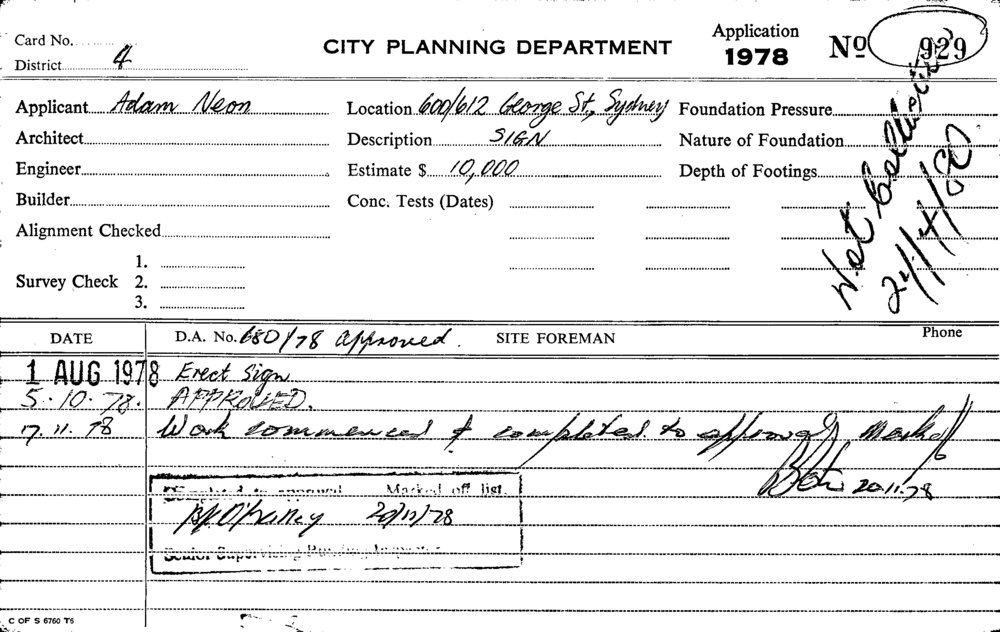 Card No.
District 4
CITY PLANNING DEPARTMENT
Application
1978
No 929
Applicant Adam Neon
Location 600/612 George St., Sydney
Foundation Pressure
Architect
Description SIGN
Nature of Foundation
Engineer
Estimate $ 10,000
Depth of Footings
Builder
Conc. Tests (Dates)
Alignment Checked
Survey Check
1.
2.
3.
Not
DATE
D.A. No. 680/78 Approved.
SITE FOREMAN
Phone
1 AUG 1978 Erect Sign
5.10.78. APPROVED.
17.11.78 Work commenced & completed to approval. Mark off
20.11.78
Completed to approval Marked off list.
20/11/78
Senior Supervising Building Inspector
C OF S 6760 T6